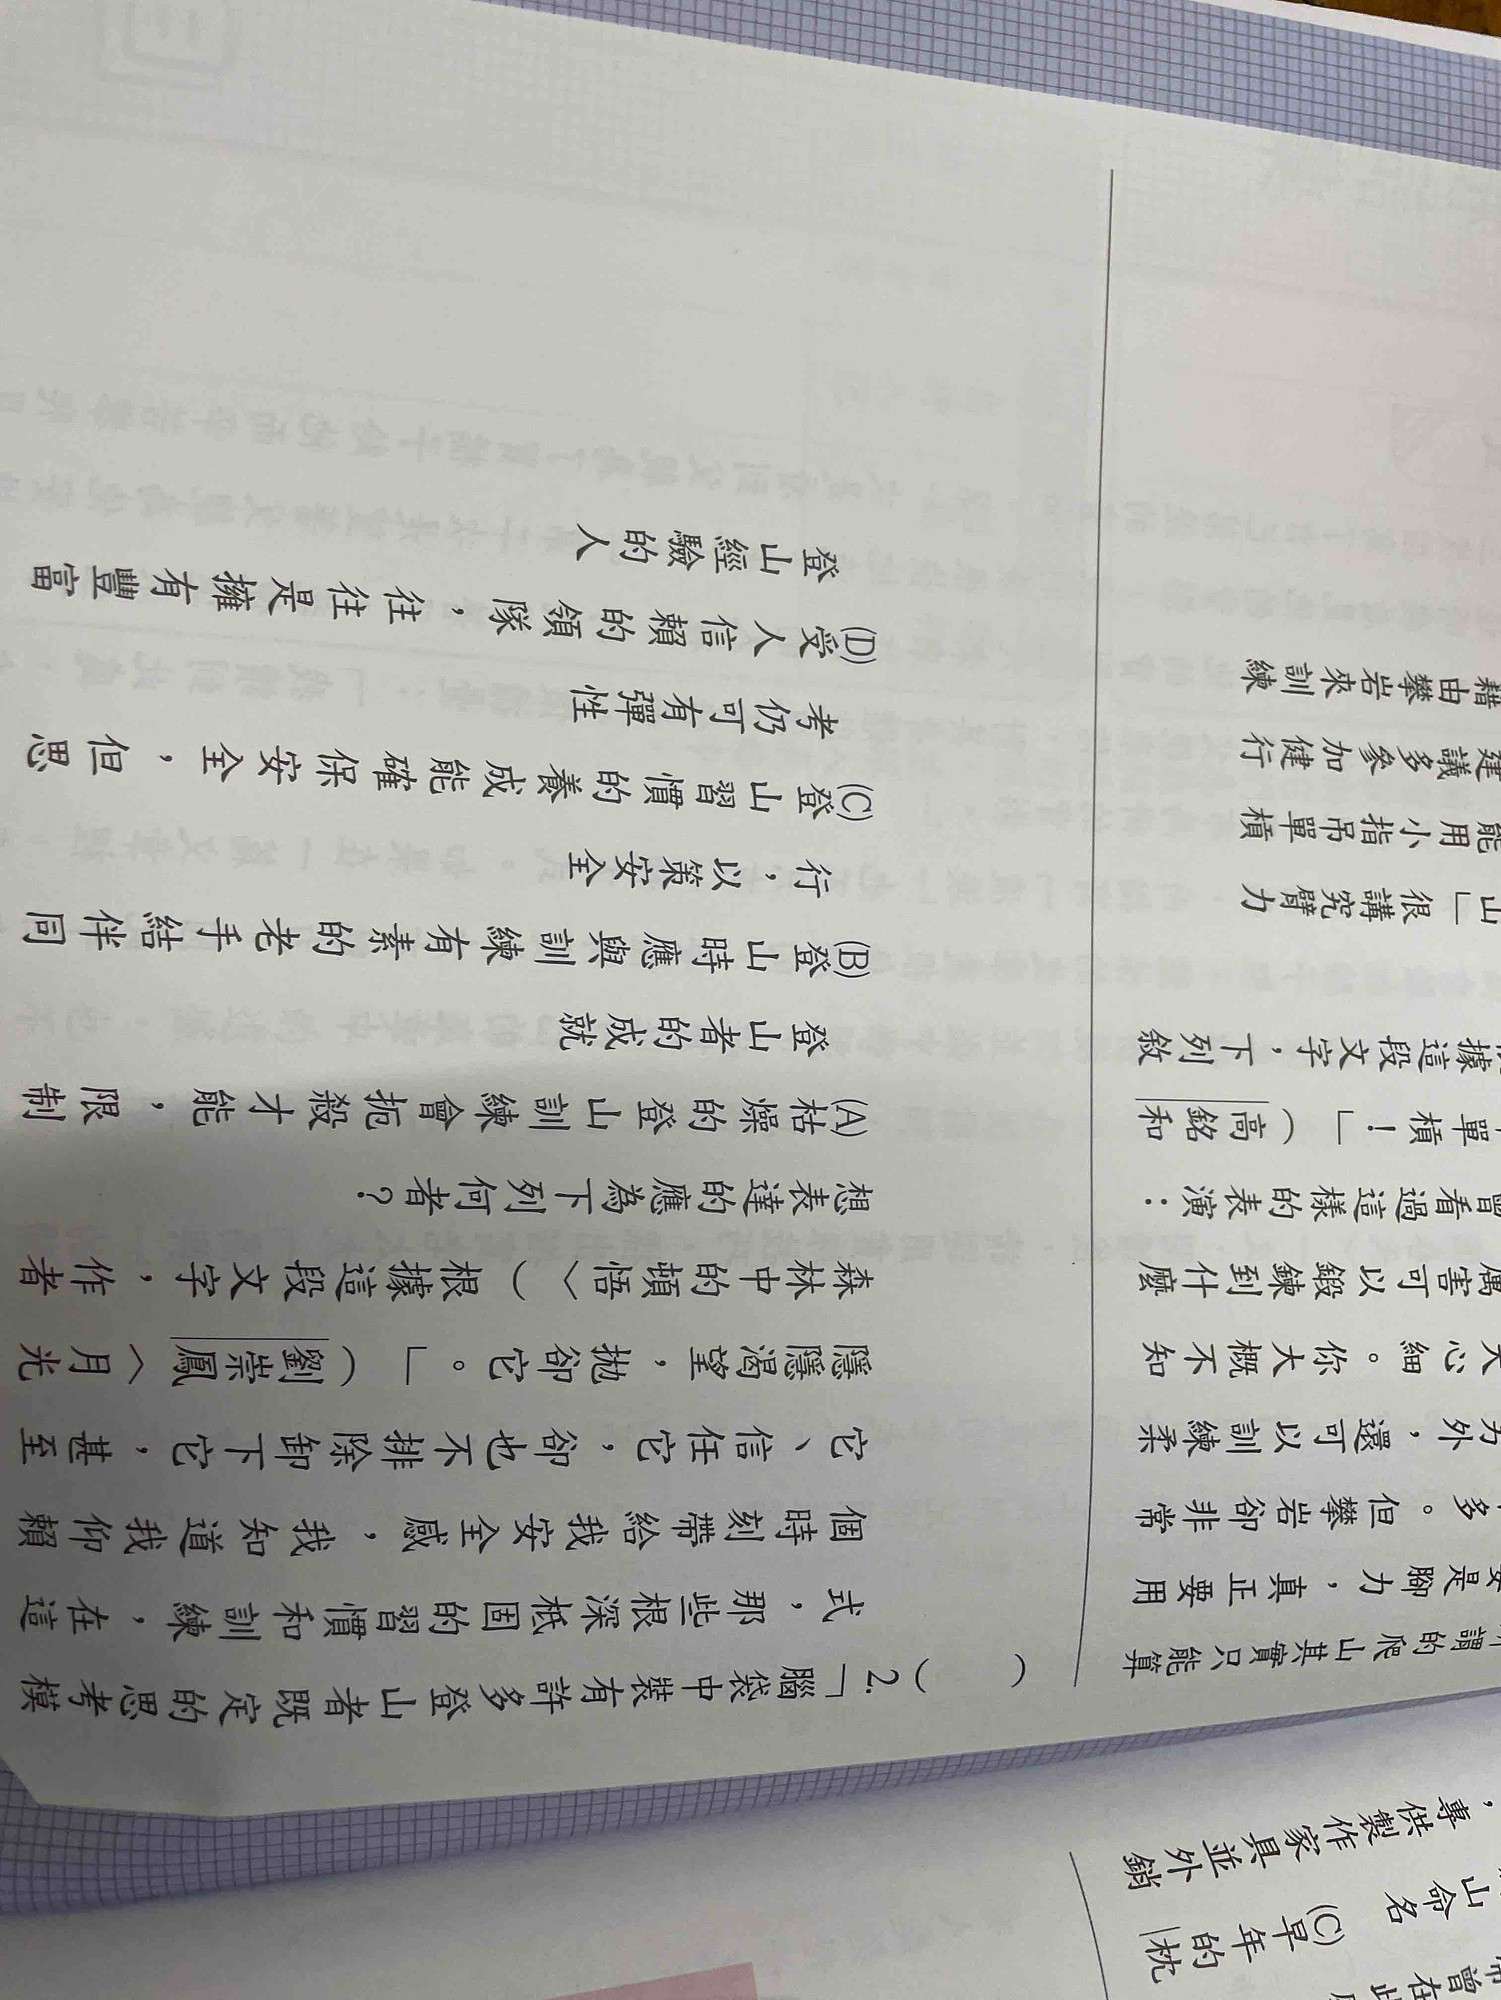 謂的爬山其實只能算
是腳力，真正要用
多。但攀岩卻非常
力外，還可以訓練柔
心細。你大概不知
厲害可以鍛鍊到什麼
曾看過這樣的表演：
單槓！」（高銘和
據這段文字，下列敘
山」很講究臂力
能用小指吊單槓
建議多參加健行
藉由攀岩來訓練
（　）2.「腦袋中裝有許多登山者既定的思考模
式，那些根深柢固的習慣和訓練，在這
個時刻帶給我安全感，我知道我仰賴
它、信任它，卻也不排除卸下它，甚至
隱隱渴望，拋卻它。」（劉崇鳳〈月光
森林中的頓悟〉）根據這段文字，作者
想表達的應為下列何者？
(A)枯燥的登山訓練會扼殺才能，限制
登山者的成就
(B)登山時應與訓練有素的老手結伴同
行，以策安全
(C)登山習慣的養成能確保安全，但思
考仍可有彈性
(D)受人信賴的領隊，往往是擁有豐富
登山經驗的人
曾在此
山命名 (C)早年的枕
，專供製作家具並外銷